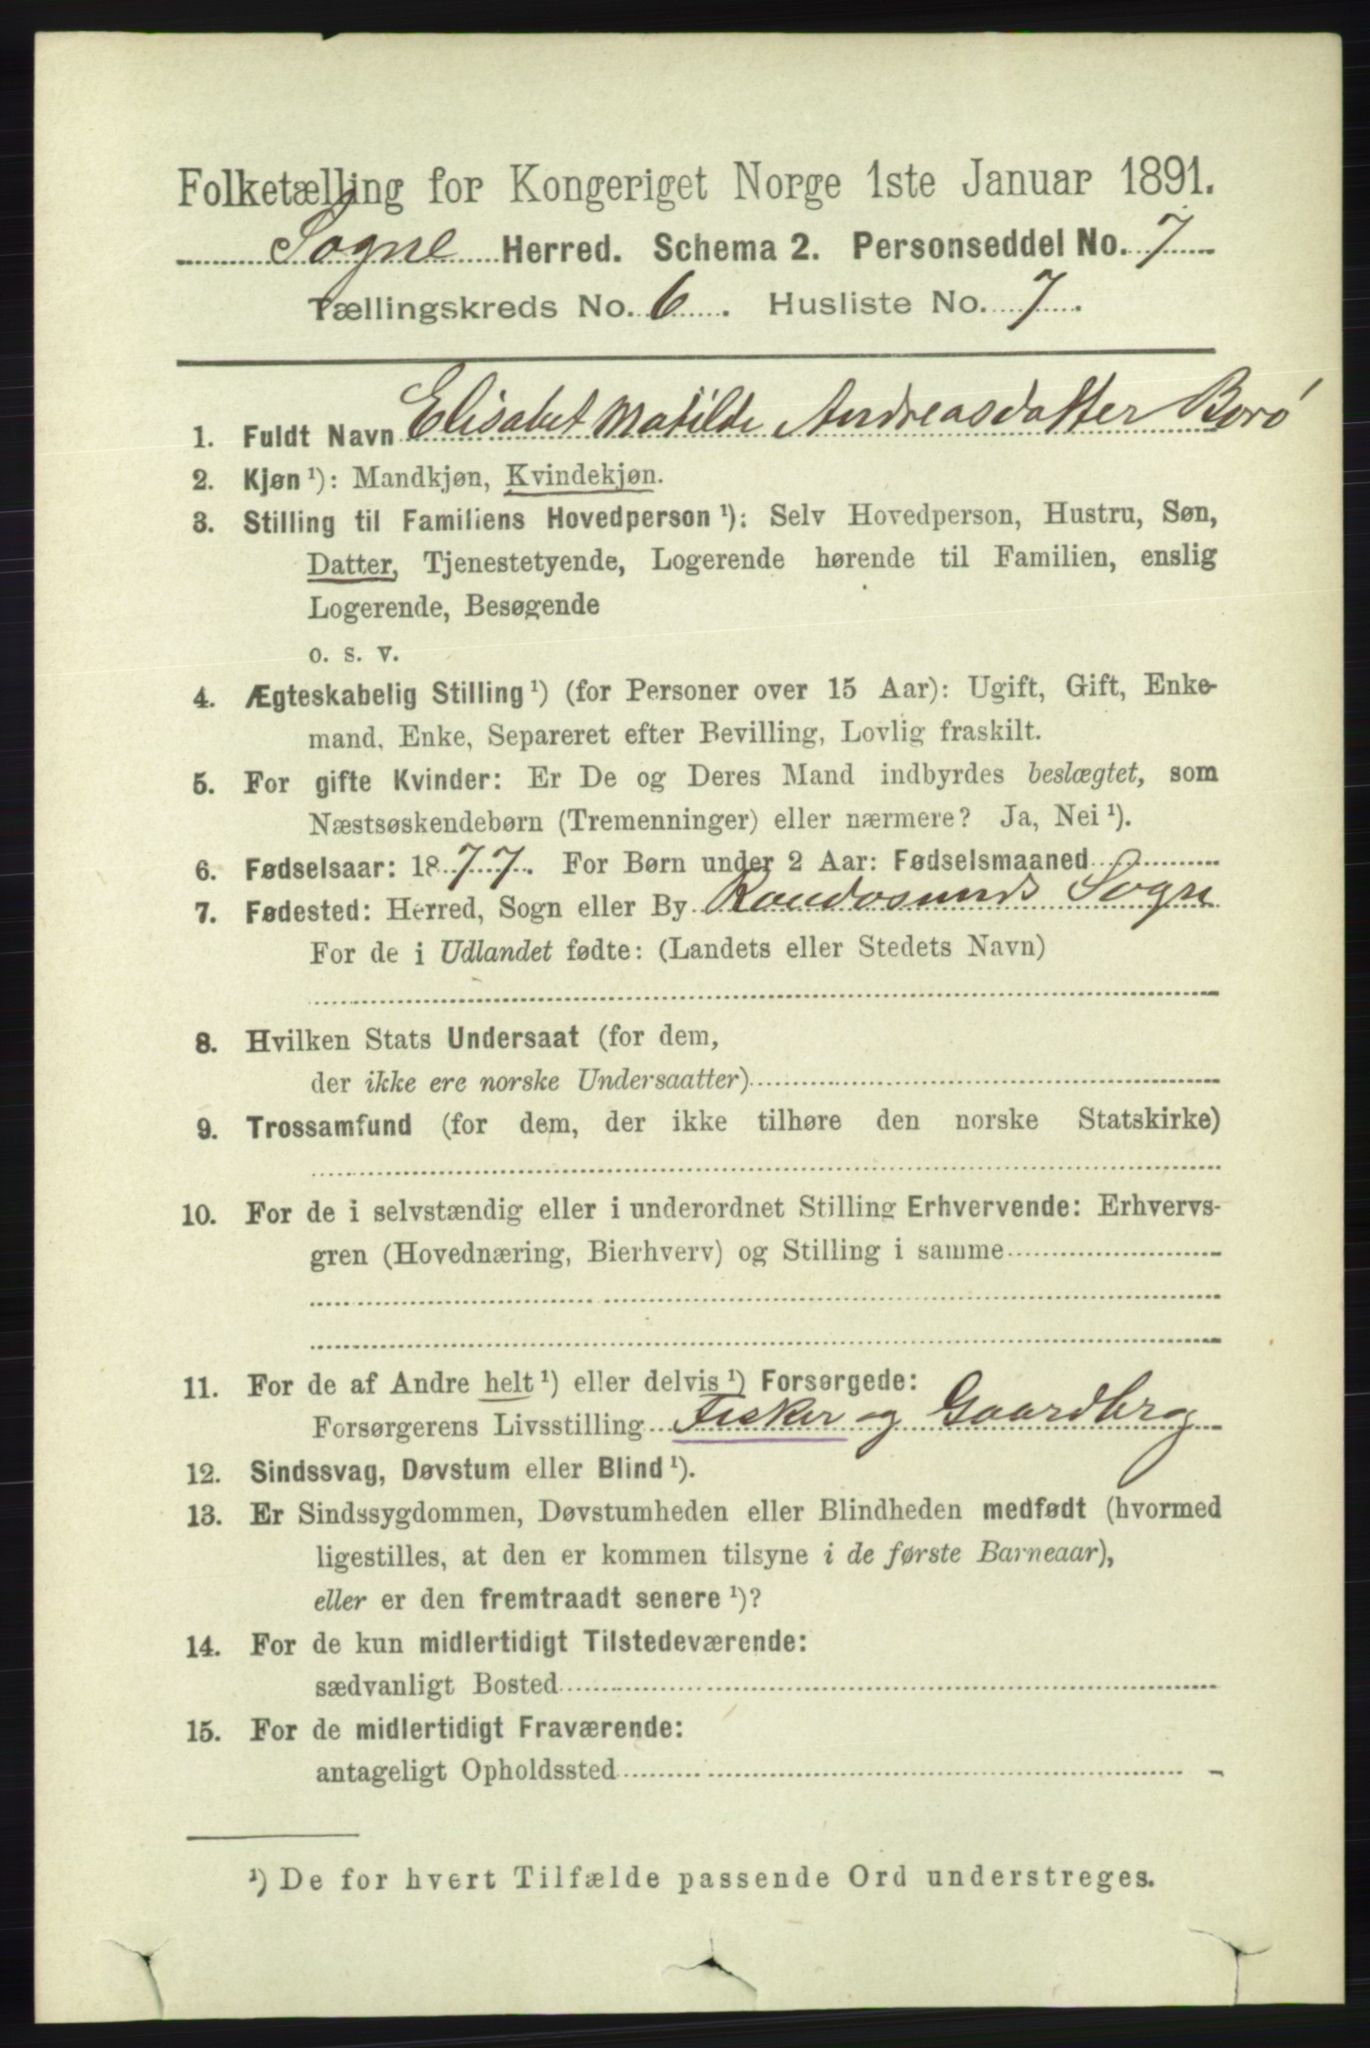 Folketælling for Kongeriget Norge 1ste Januar 1891.
Søgne Herred. Schema 2. Personseddel No. 7
Tællingskreds No. 6. Husliste No. 7.
1. Fuldt Navn Elisabet Matilde Andreasdatter Borö
2. Kjøn ¹): Mandkjøn, Kvindekjøn.
3. Stilling til Familiens Hovedperson ¹): Selv Hovedperson, Hustru, Søn,
Datter, Tjenestetyende, Logerende hørende til Familien, enslig
Logerende, Besøgende
o. s. v.
4. Ægteskabelig Stilling ¹) (for Personer over 15 Aar): Ugift, Gift, Enke-
mand, Enke, Separeret efter Bevilling, Lovlig fraskilt.
5. For gifte Kvinder: Er De og Deres Mand indbyrdes beslægtet, som
Næstsøskendebørn (Tremenninger) eller nærmere? Ja, Nei ¹).
6. Fødselsaar: 1877. For Børn under 2 Aar: Fødselsmaaned
7. Fødested: Herred, Sogn eller By Randøsunds Sogn
For de i Udlandet fødte: (Landets eller Stedets Navn)
8. Hvilken Stats Undersaat (for dem,
der ikke ere norske Undersaatter)
9. Trossamfund (for dem, der ikke tilhøre den norske Statskirke)
10. For de i selvstændig eller i underordnet Stilling Erhvervende: Erhvervs-
gren (Hovednæring, Bierhverv) og Stilling i samme
11. For de af Andre helt ¹) eller delvis ¹) Forsørgede:
Forsørgerens Livsstilling Fisker og Gaardbrug
12. Sindssvag, Døvstum eller Blind ¹).
13. Er Sindssygdommen, Døvstumheden eller Blindheden medfødt (hvormed
ligestilles, at den er kommen tilsyne i de første Barneaar),
eller er den fremtraadt senere ¹)?
14. For de kun midlertidigt Tilstedeværende:
sædvanligt Bosted
15. For de midlertidigt Fraværende:
antageligt Opholdssted
¹) De for hvert Tilfælde passende Ord understreges.